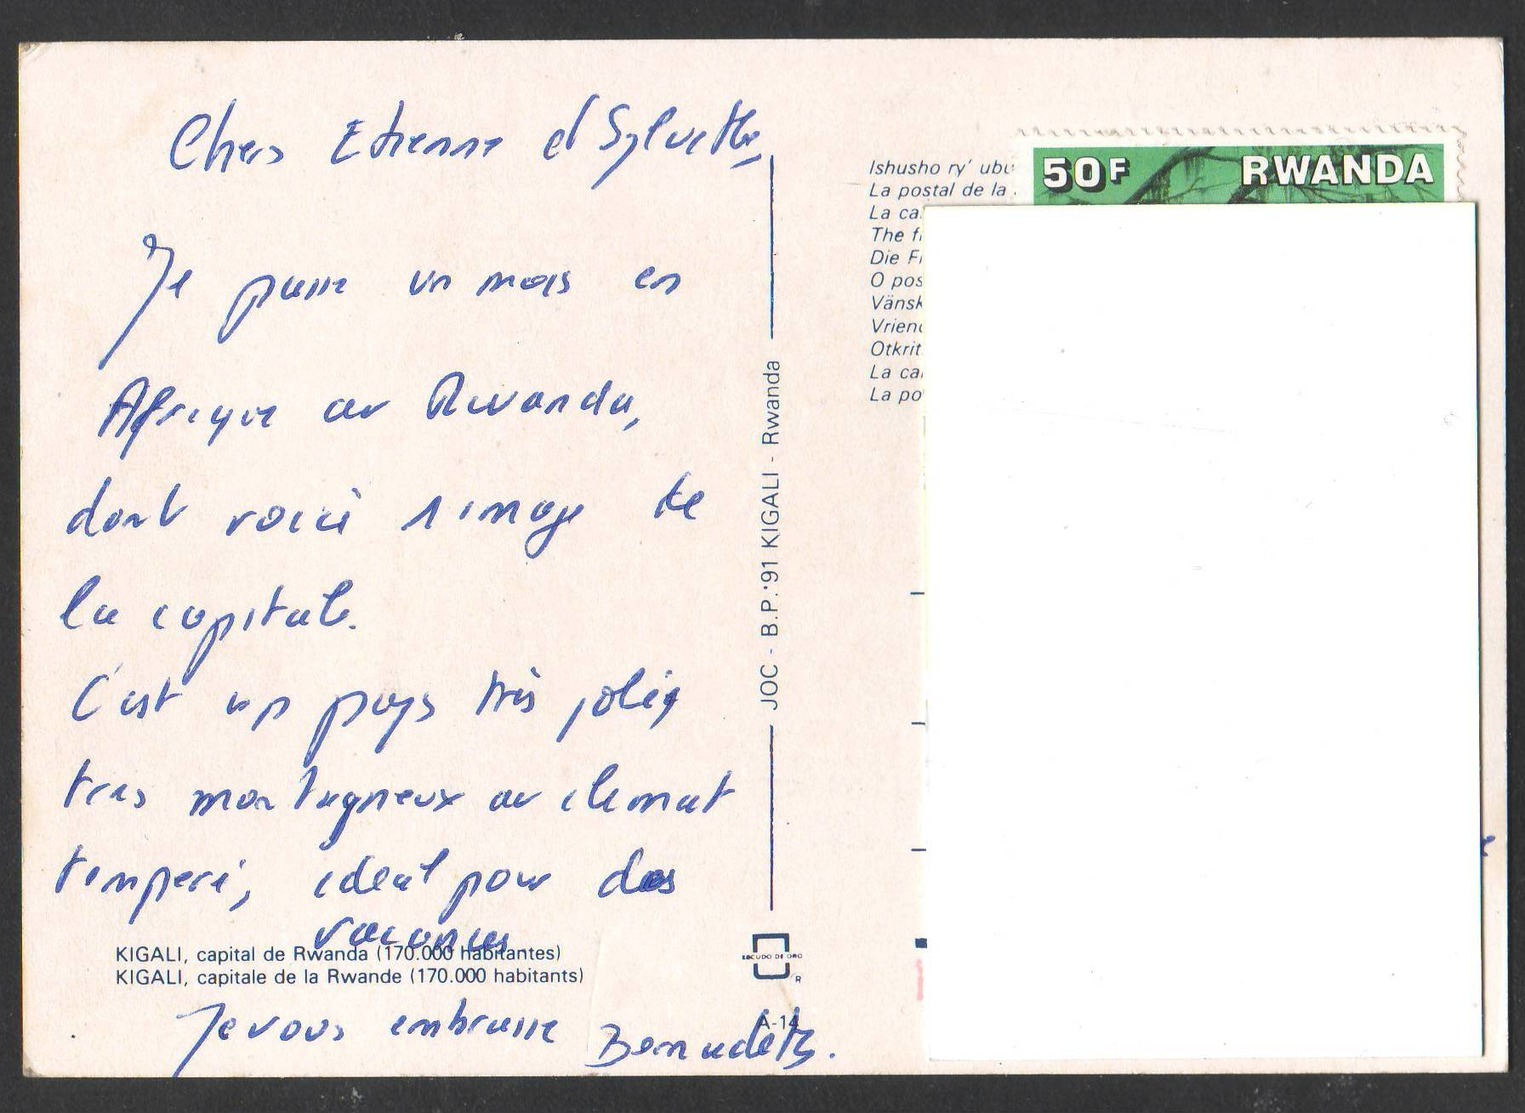 Chers Etienne et Sylvette,
Je passe un mois en
Afrique au Rwanda,
dont voici 1 image de
la capitale.
C'est un pays très joli,
tres montagneux au climat
temperé, ideal pour des
vacances
KIGALI, capital de Rwanda (170.000 habitantes)
KIGALI, capitale de la Rwande (170.000 habitants)
Je vous embrasse Bernadette.
JOC - B.P.: 91 KIGALI - Rwanda
ESCUDO DE ORO
R
A-14
Ishusho ry' ubu
La postal de la
La ca
The f
Die F
O pos
Vänsk
Vrien
Otkrit
La ca
La po
50F RWANDA